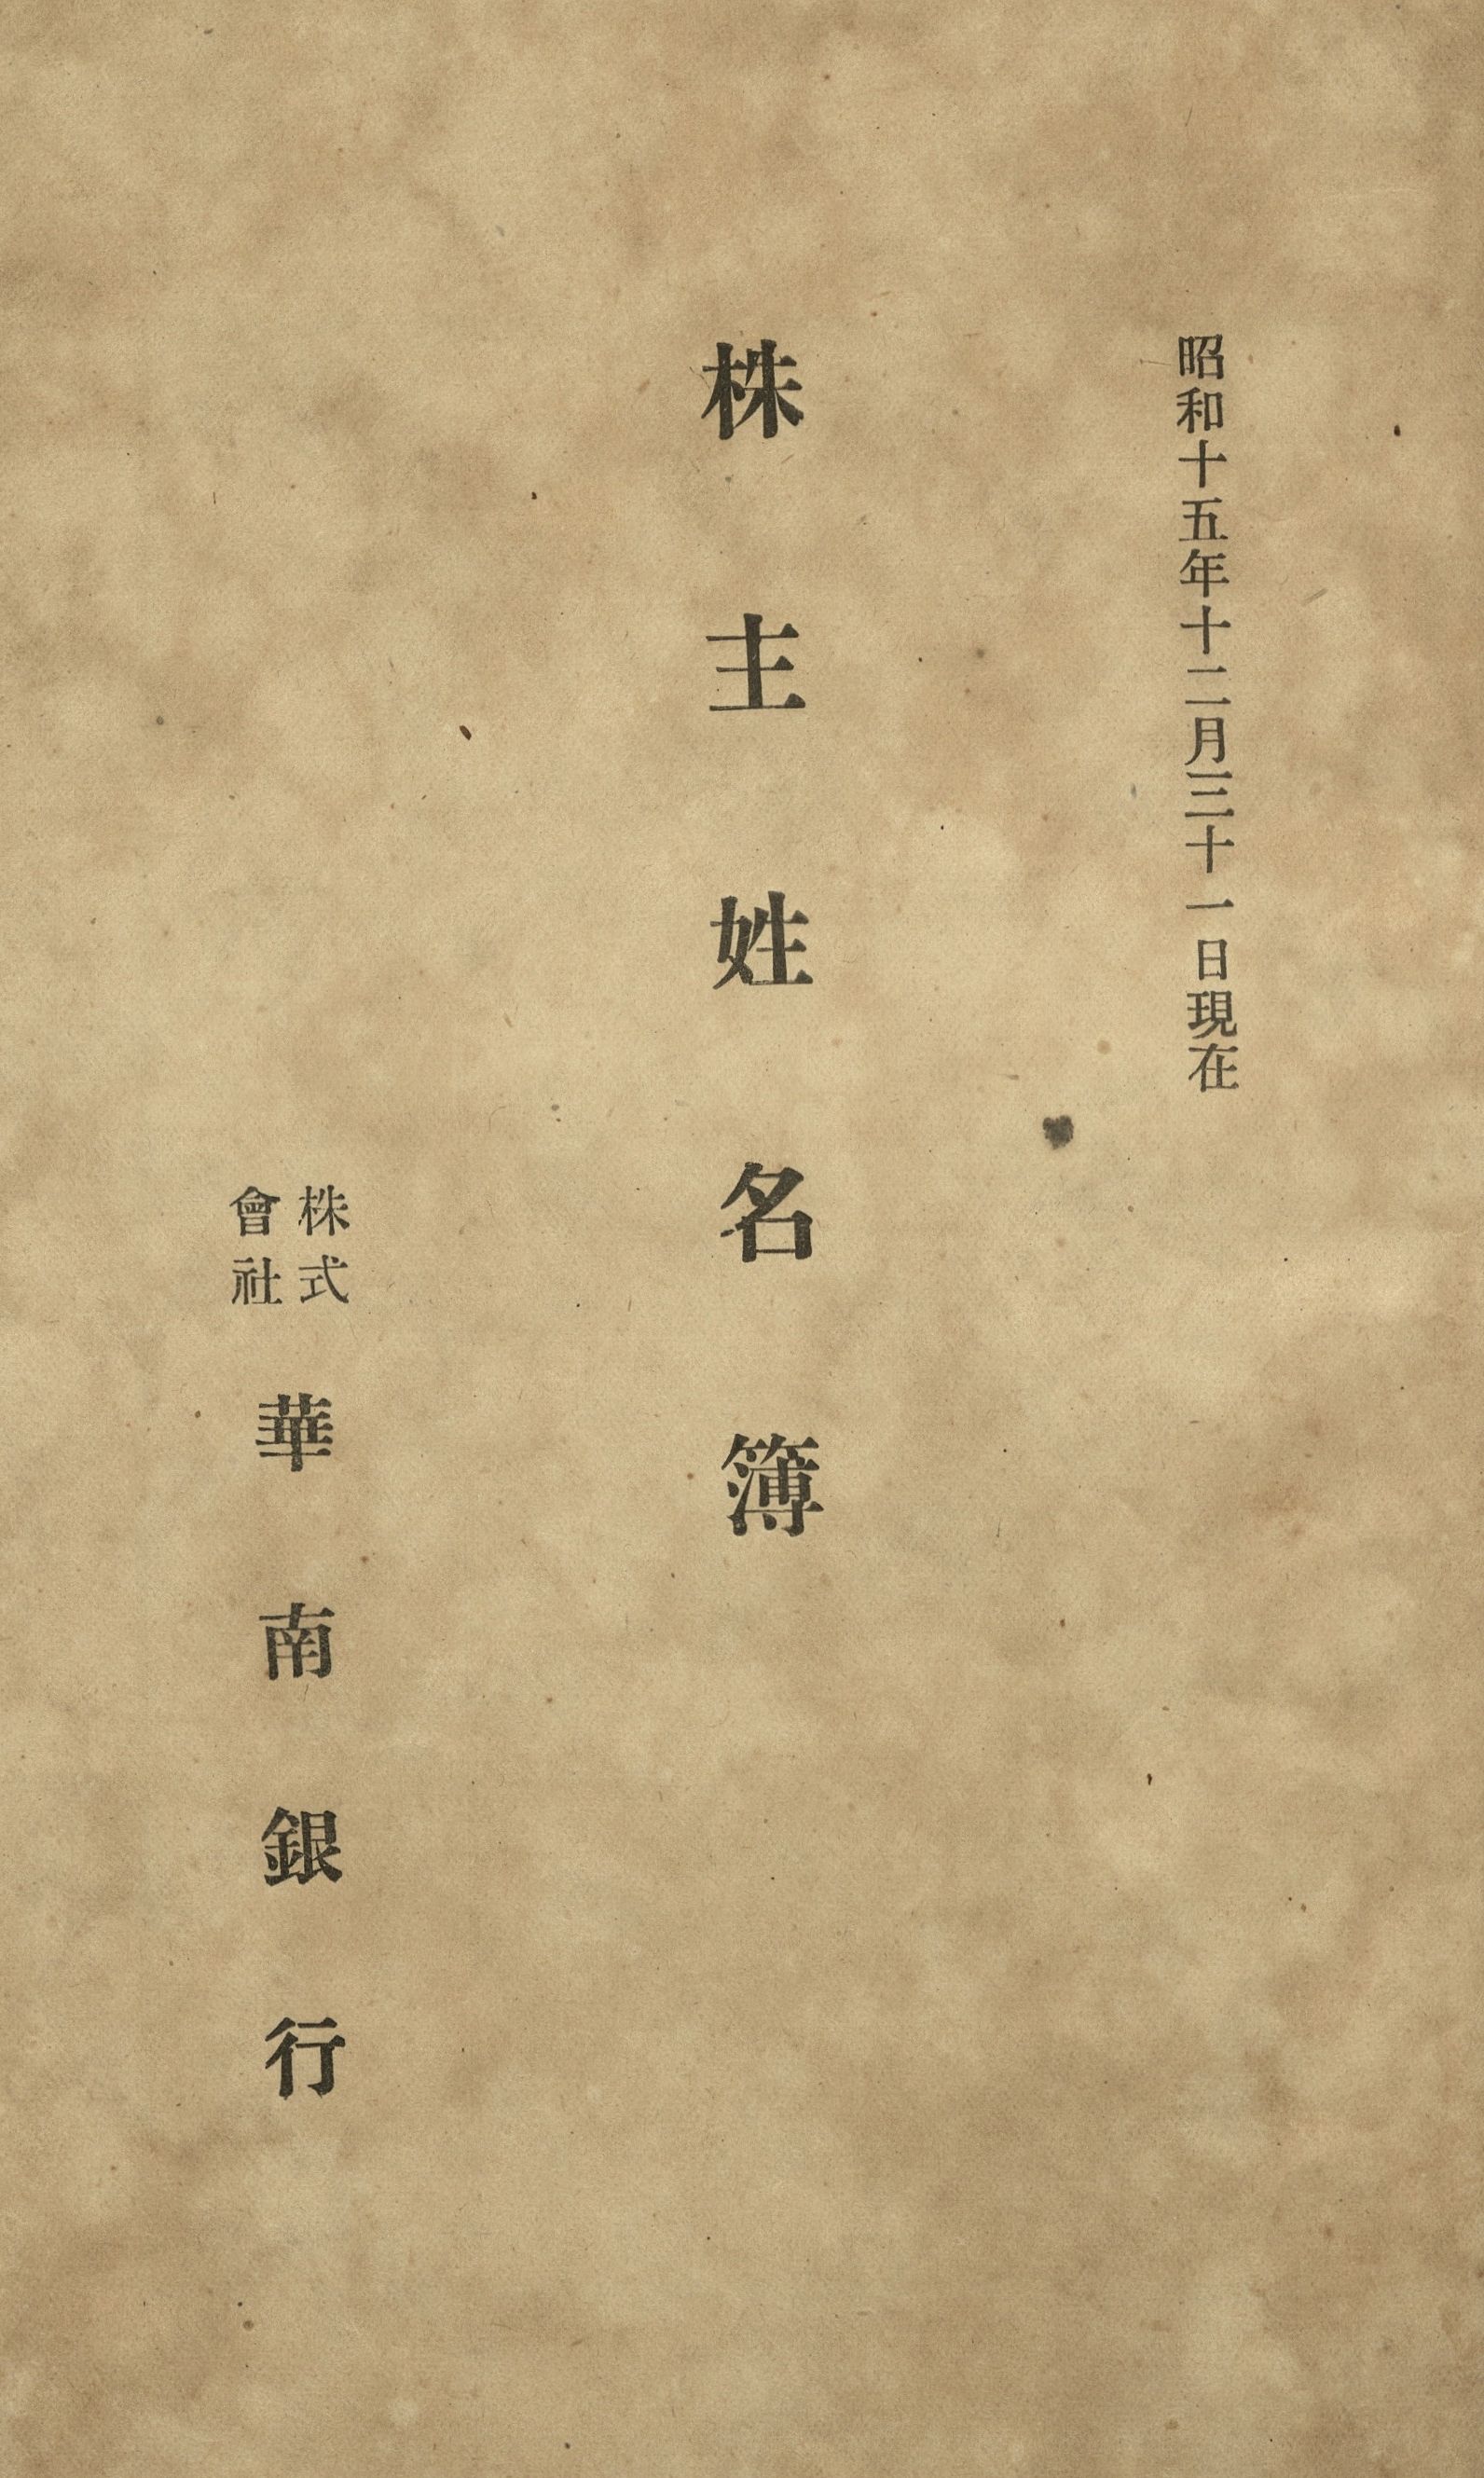 昭和十五年十二月三十一日現在
株主姓名簿
株式會社
華南銀行